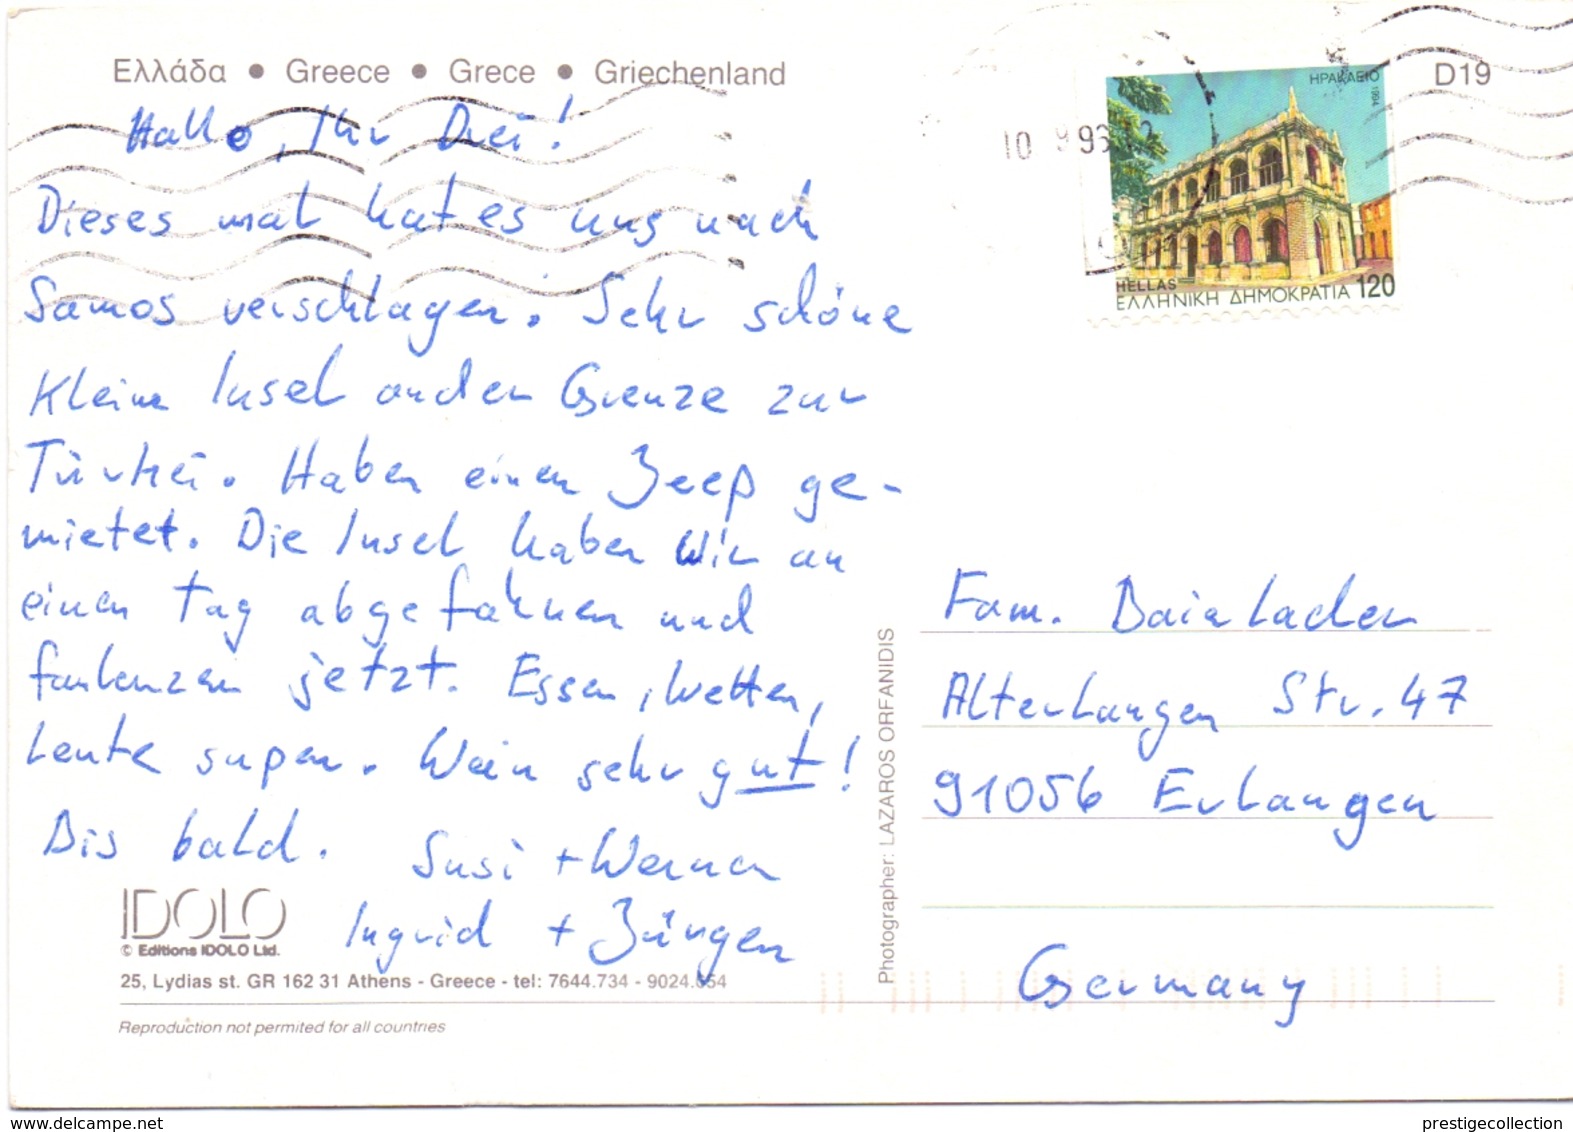 Ελλάδα • Greece • Grece • Griechenland
D19
ΗΡΑΚΛΕΙΟ
1994
10 9 96 12
HELLAS
ΕΛΛΗΝΙΚΗ ΔΗΜΟΚΡΑΤΙΑ 120
Hallo, Ihr Drei!
Dieses mal hat es uns nach
Samos verschlagen. Sehr schöne
Kleine Insel an der Grenze zur
Türkei. Haben einen Jeep ge-
mietet. Die Insel haben wir an
einen Tag abgefahren und
faulenzen jetzt. Essen, Wetter,
Leute super. Wein sehr gut!
Bis bald.
Susi + Werner
Ingrid + Jürgen
Fam. Baierlader
Alterlangen Str. 47
91056 Erlangen
Germany
Photographer: LAZAROS ORFANIDIS
IDOLO
© Editions IDOLO Ltd.
25, Lydias st. GR 162 31 Athens - Greece - tel: 7644.734 - 9024.654
Reproduction not permited for all countries
www.delcampe.net
prestigecollection